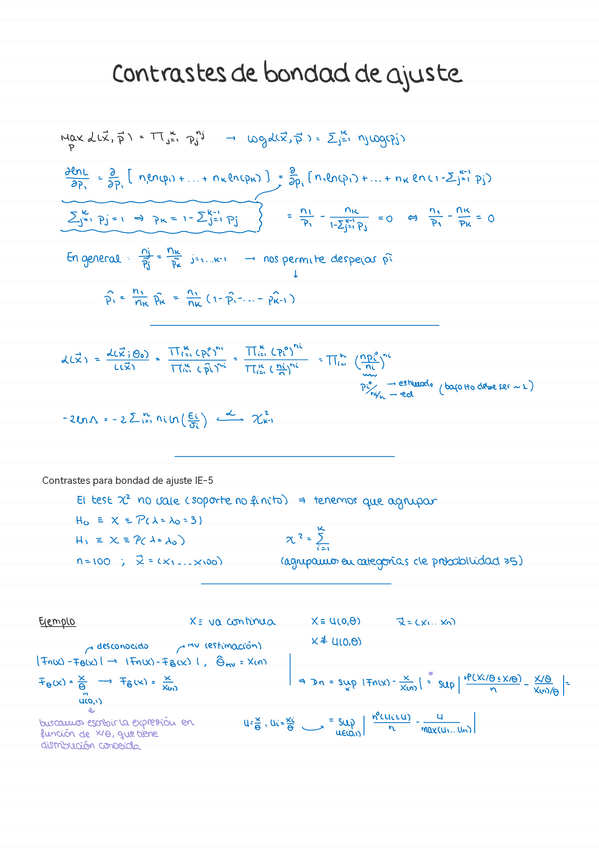 Contrastes de bondad de ajuste
Max_p L(x⃗, p⃗) = ∏_{j=1}^k p_j^{n_j} → log L(x⃗, p⃗) = Σ_{j=1}^k n_j log(p_j)
∂ln L/∂p_1 = ∂/∂p_1 [n_1 ln(p_1) + ... + n_k ln(p_k)] = ∂/∂p_1 [n_1 ln(p_1) + ... + n_k ln(1 - Σ_{j=1}^{k-1} p_j)]
Σ_{j=1}^k p_j = 1 ⇒ p_k = 1 - Σ_{j=1}^{k-1} p_j = n_1/p_1 - n_k/(1 - Σ_{j=1}^{k-1} p_j) = 0 ⇔ n_1/p_1 - n_k/p_k = 0
En general: n_j/p̂_j = n_k/p̂_k j=1...k-1 → nos permite despejar p̂_i
↓
p̂_1 = n_1/n_k p̂_k = n_1/n_k (1 - p̂_1 - ... - p̂_{k-1})
L(x⃗) = L(x⃗; θ_0)/L(x⃗) = ∏_{i=1}^k (p_i^0)^{n_i} / ∏_{i=1}^k (p̂_i)^{n_i} = ∏_{i=1}^k (p_i^0)^{n_i} / ∏_{i=1}^k (n_i/n)^{n_i} = ∏_{i=1}^k (n p_i^0 / n_i)^{n_i}
p_i^0 / n_i/n → estimado → real (bajo H0 debe ser ~1)
-2 ln Λ = -2 Σ_{i=1}^n n_i ln(E_i/O_i) →^L χ²_{k-1}
Contrastes para bondad de ajuste IE-5
El test χ² no vale (soporte no finito) ⇒ tenemos que agrupar
H_0 ≡ X ≡ P(λ = λ_0 = 3)
H_1 ≡ X ≡ P(λ = λ_0) χ² = Σ_{i=1}^k
n=100 ; x⃗ = (x_1 ... x_100) (agrupamos en categorías de probabilidad ≥5)
Ejemplo X ≡ va continua X ≡ U(0,θ) x⃗ = (x_1...x_n)
X ≢ U(0,θ)
desconocido MV (estimación)
|F_n(x) - F_θ(x)| → |F_n(x) - F_θ̂(x)|, θ̂_MV = X_(n)
F_θ(x) = x/θ → F_θ̂(x) = x/x_(n) ⇒ D_n = sup_x |F_n(x) - x/x_(n)| = sup |nº(x_i/θ ≤ x/θ)/n - (x/θ)/(x_(n)/θ)| =
U(0,1)
buscamos escribir la expresión en
función de x/θ, que tiene
distribución conocida.
u = x/θ, u_i = x_i/θ = sup_{u∈(0,1)} |nº(u_i ≤ u)/n - u/max(u_1...u_n)|